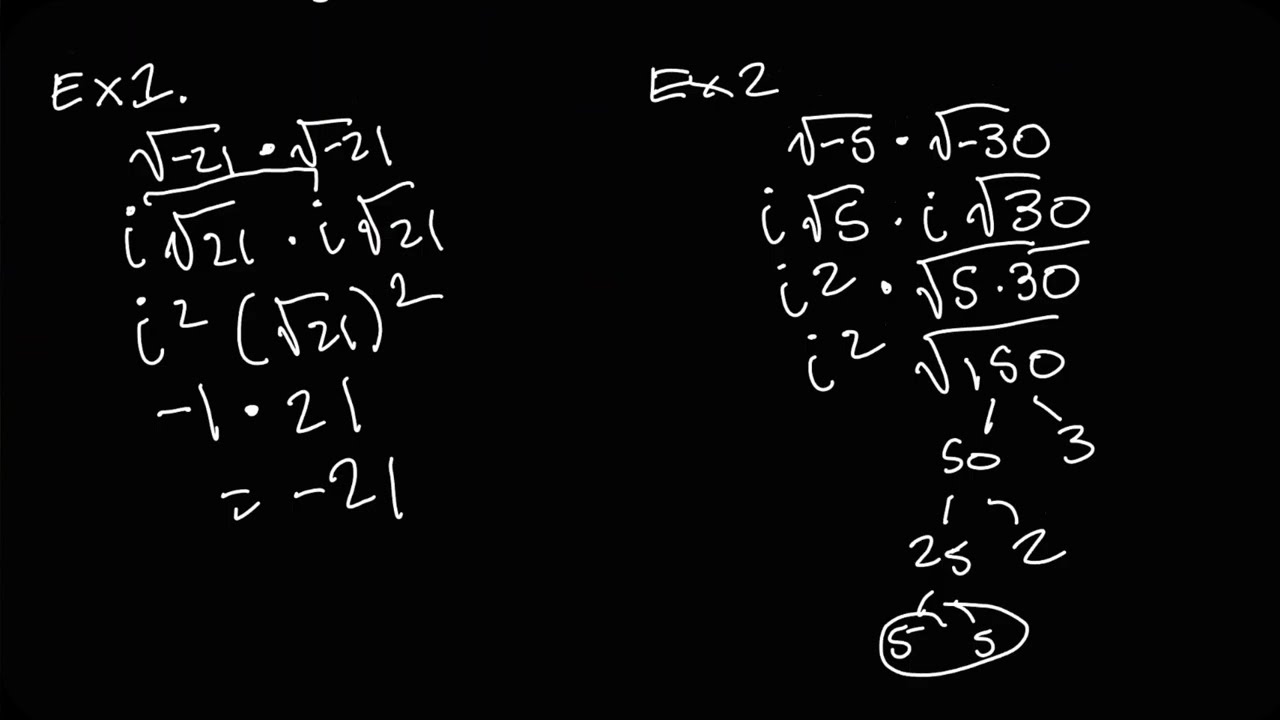 Ex1.
√-21 • √-21
i √21 · i √21
i² (√21)²
-1 • 21
= -21
Ex2
√-5 • √-30
i √5 · i √30
i² • √5·30
i² √150
50 3
25 2
5 5